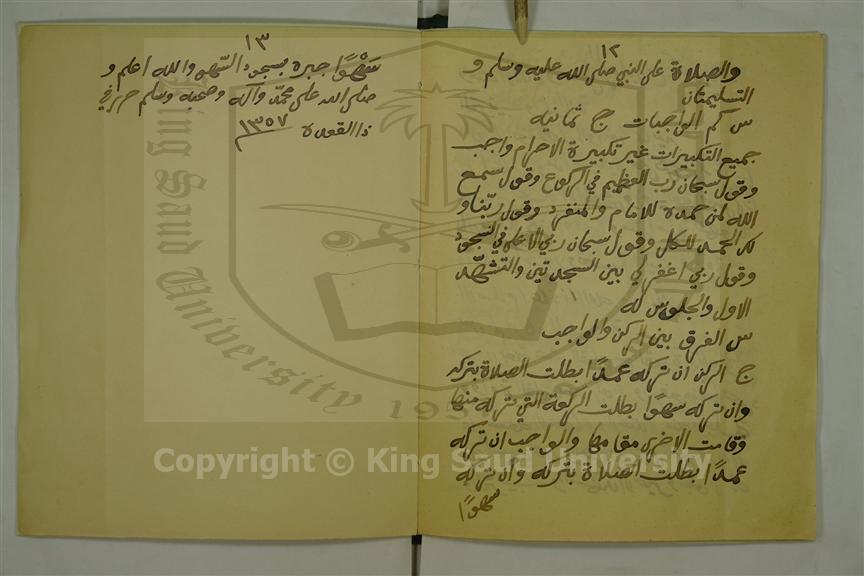 ١٢
والصلاة على النبي صلى الله عليه وسلم و
التسليمتان
س كم الواجبات ج ثمانيه
جميع التكبيرات غير تكبيرة الاحرام واجب
وقول سبحان رب العظيم في الركوع وقول سمع
الله لمن حمده للامام والمنفرد وقول ربنا و
لك الحمد للكل وقول سبحان ربي الاعلى في السجود
وقول ربي اغفر لي بين السجدتين والتشهد
الاول والجلوس له
س الفرق بين الركن والواجب
ج الركن ان تركه عمدًا بطلت الصلاة بتركه
وان تركه سهوًا بطلت الركعة التي تركه منها
وقامت الاخرى مقامها والواجب ان تركه
عمدًا بطلت الصلاة بتركه وان تركه
سهوًا
١٣
سَهْوًا جبره بسجود السّهو والله اعلم و
صلى الله على محمّد وآله وصحبه وسلم حرر في
ذا القعدة ١٣٥٧
King Saud University
195
Copyright © King Saud University